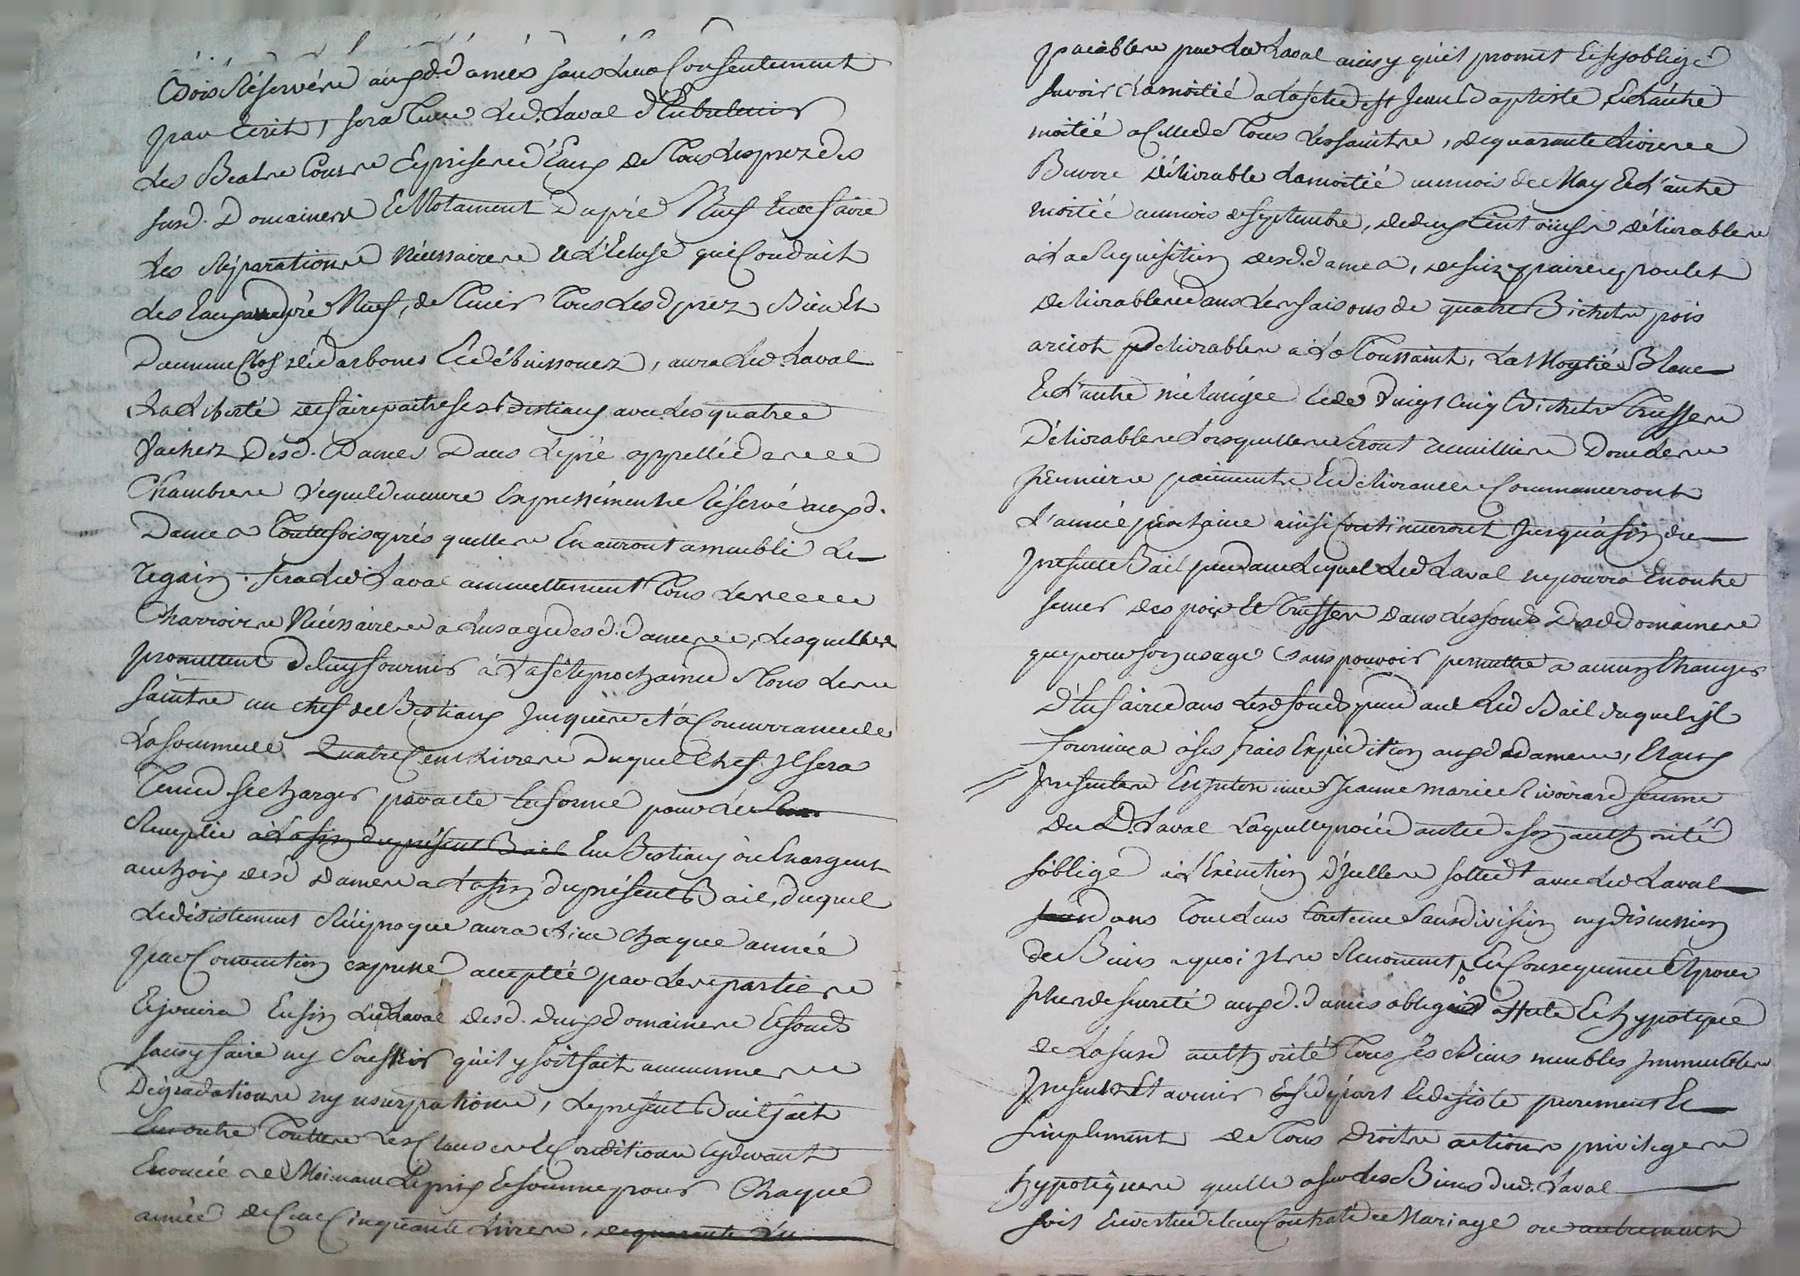 Bois Réservére auxd. damés sans Leur Consentement
par Ecrit, sera Tenu Led. Laval d'Entretenir
Les Bealre Courre Eprisere d'Eaux de Tous Les prez des
susd. Domainere Et Notament Dupré Neuf En faire
Les Réparationre Nécessairere a L'Ecluse qui Conduit
Les Eaux audpré Neuf, de Tenir Tous Lesd. prez Bien Et
Dument Clos dédarbonés Et débuissonez, aura Led. Laval
La Liberté de faire paitre ses Bestiaux avec Les quatre
Vachez Desd. Dames Dans Le pré appellé des
Chambrere Lequel demeure Expressément Réservé auxd.
Dames Toutefois après quellere En auront ameublé Le
regain. fera Led. Laval annuellement Tous Les
Charroirre Nécessairere a Lusage desd. damere, Lesquellere
promettent De luy fournir à La fête prochaine Tous Les
saintre un chef de Bestiaux Jusquere et à Concurrance de
La somme de Quatre Cent Livrere Duquel Chef Jl sera
Tenu se Charger par acte En forme pour Le
Remplir à La fin du présent Bail En Bestiaux ou En argent
au choix desd. Damere a La fin du présent Bail, duquel
Le désistement Réciproque aura Lieu chaque année
par Convention expresse acceptée par Les partiere
Ejouira Enfin Led. Laval desd. deux domainere Et fonds
sans y faire ny souffrir qu'il y soit fait aucunnere
Dégradationre ny usurpationre, Le présent Bail fait
En outre Touttere Les Clausere Et Conditionre Cy devant
Enoncéere Moienant Le prix Et somme pour Chaque
année de Cent Cinquante Livrere, de quarante Liv
païablere par Led. Laval ainsy qu'il promet Et s'y oblige
savoir La moitié a La fête de St Jean Baptiste Et L'autre
moitié a Celle de Tous Les saintre, de quarante Livrere
Buvre Délivrable La moitié au mois de May Et L'autre
moitié au mois de septembre, de deux Cent œufs délivrablere
à La Réquisition desd. dames, de six paires poulets
délivrablere dans Leurs saisons de quatre Bichetre pois
aricot délivrablere à La Toussaint, La Moytié Blanc
Et L'autre mélangée Et de Vingt Cinq Bichetre Truffere
Délivrablere Lorsquellere seront recueilliere Dont Les
premiere païementre Et délivrancere Commanceront
L'année prochaine ainsi Continueront Jusqu'à fin du
présent Bail pendant Lequel Led. Laval ny pourra En outre
semer des pois Et Truffere dans Les fonds Desd. domainere
que pour son usage sans pouvoir permettre a aucun Etranger
D'En faire dans Lesd. fonds pendant Led. Bail duquel Jl
fournira à ses frais Expédition auxd. damere, Et aux
présentere Est intervenue Jeanne Marie Rivoirard femme
du d. Laval Laquelle procédant de son authorité
s'oblige à L'Exécution d'Jcellere sollidt avec Led. Laval
dans Tout Leur Contenu sans division ny discussion
de Biens a quoi Jlre Renoncent, Et En Conséquence Et pour
plus de sureté auxd. dames oblige affecte Et hypotèque
de La susd. authorité Tous ses Biens meubles Jmmeublere
présents Et avenir Et se départ Et désiste purement Et
simplement de Tous Droitre actionre privilegere
hypotequere quelle a sur Les Biens dud. Laval
soit En vertu de Leur Contrat de Mariage ou autrement